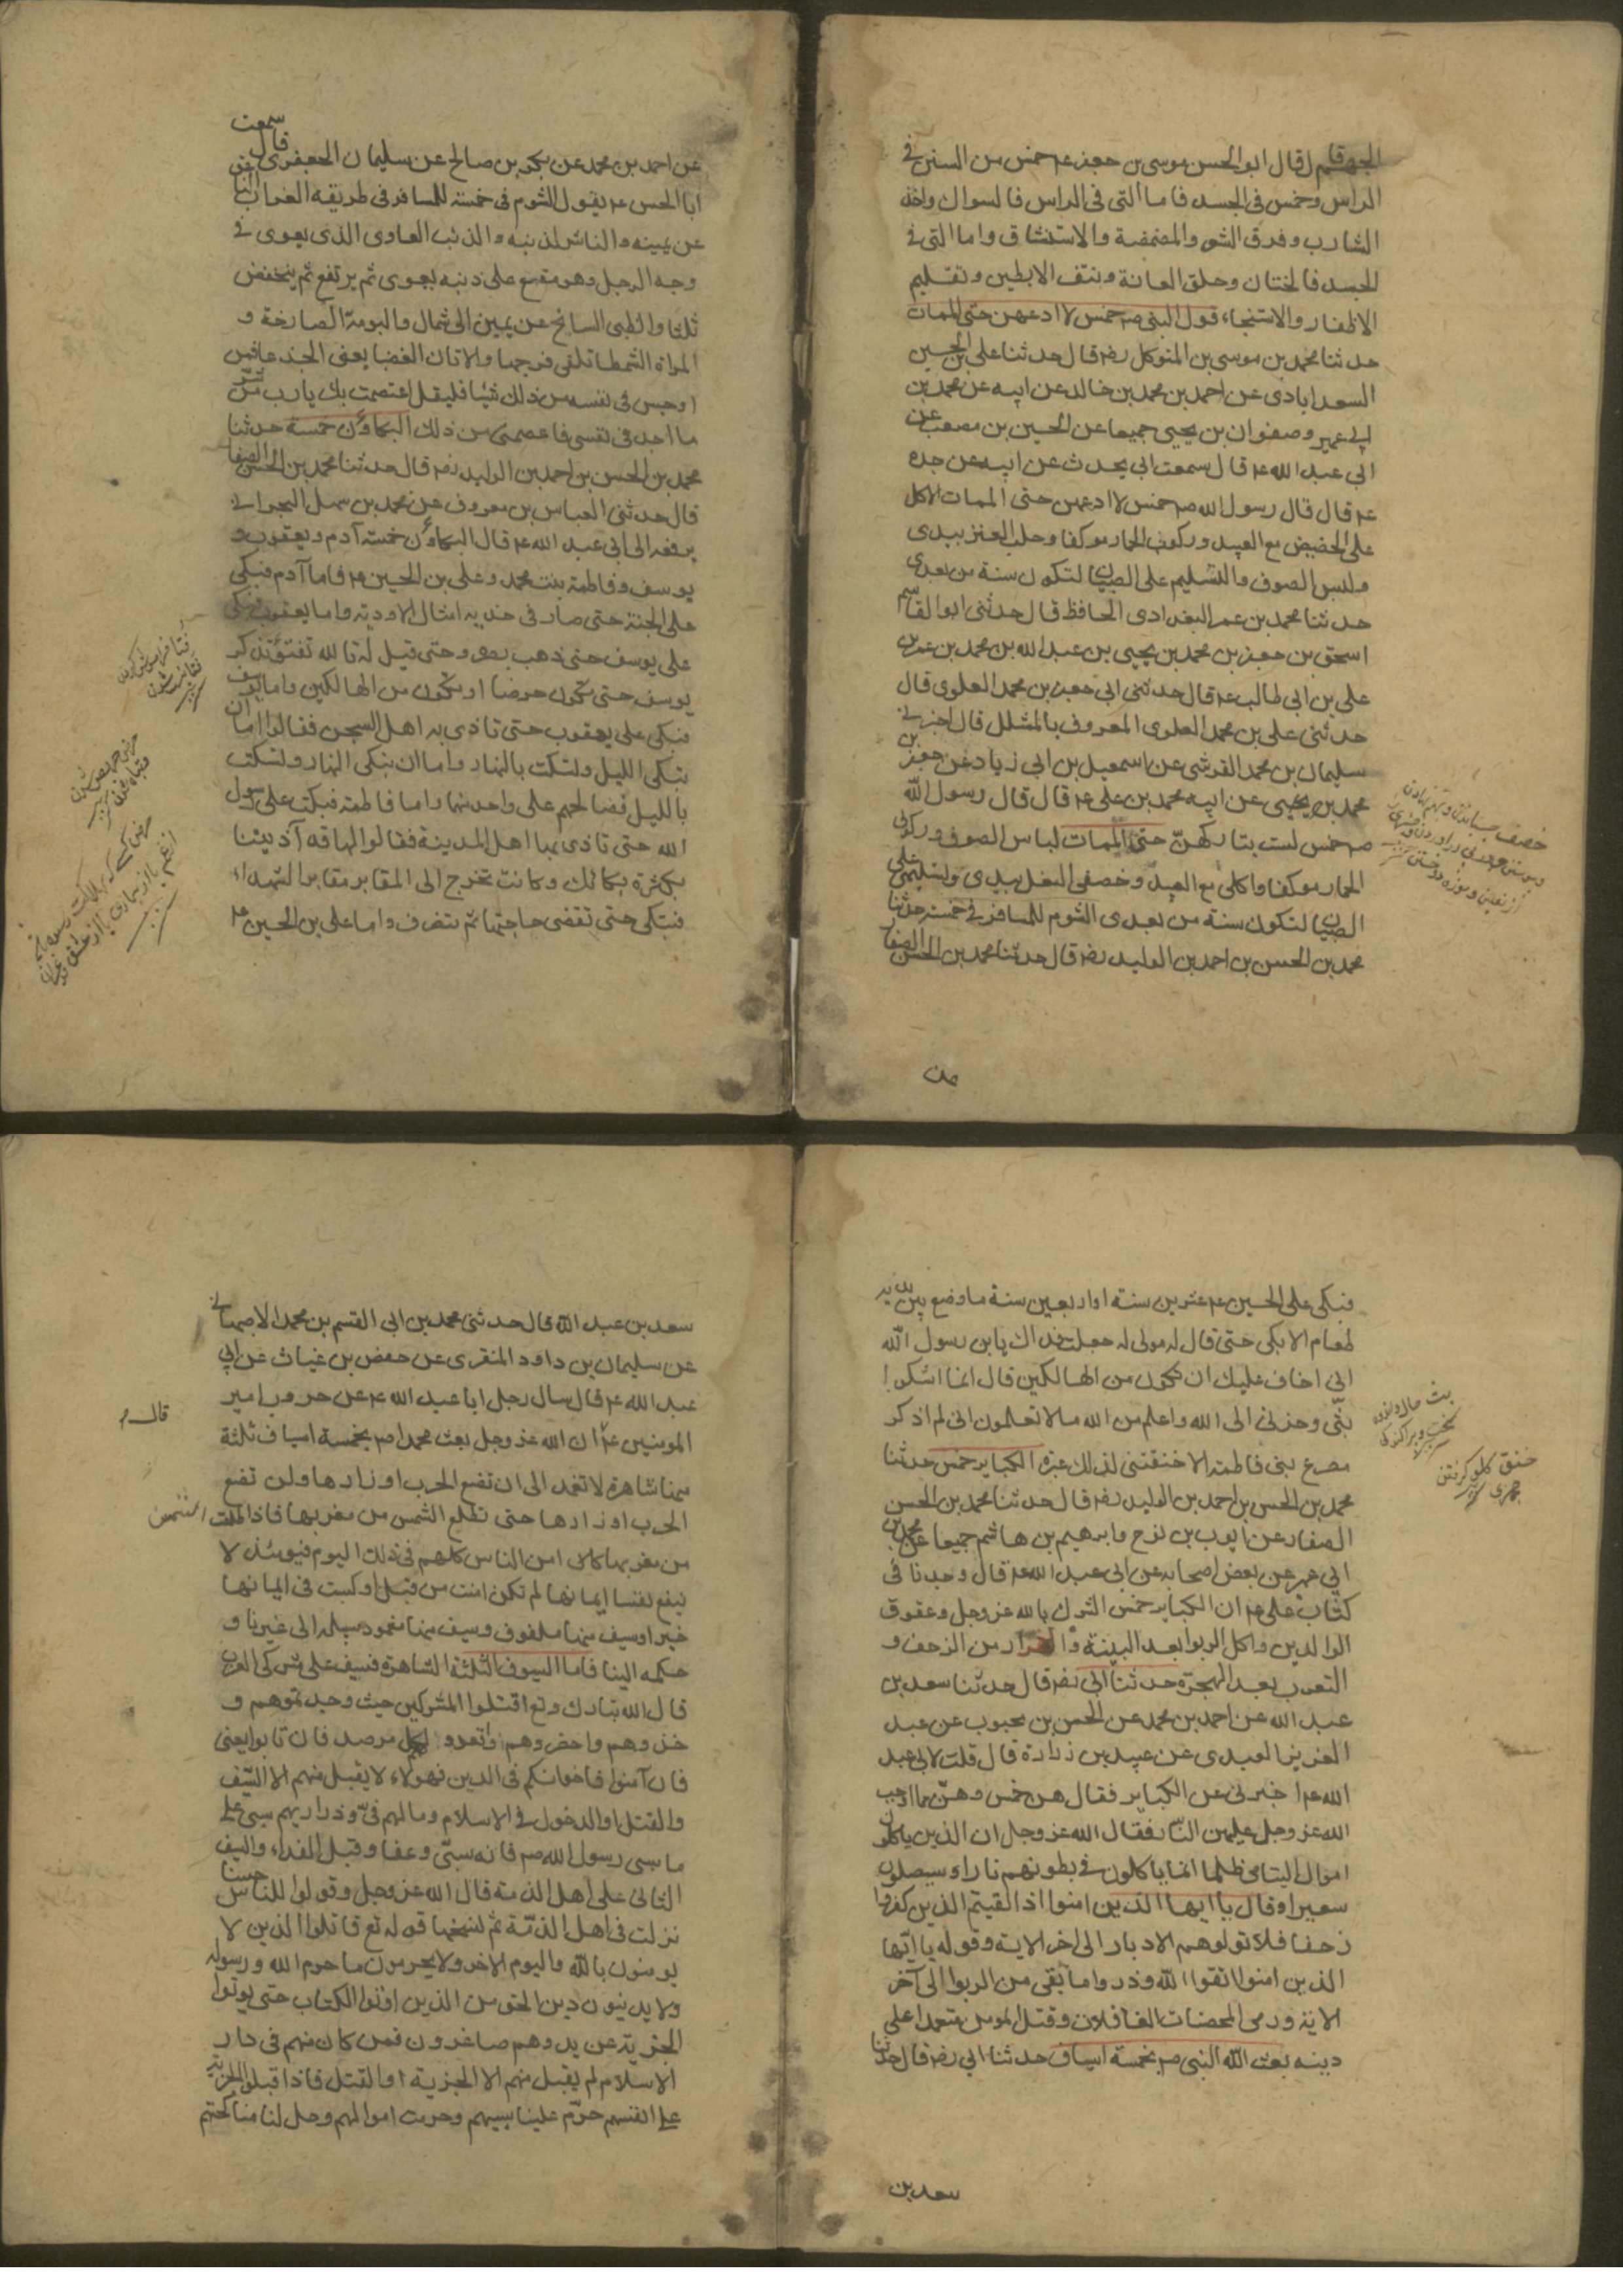 الجهم قال قال ابو الحسن موسى بن جعفر ع م خمس من السنن في
الراس وخمس في الجسد فاما التى في الراس فالسواك واخذ
الشارب وفرق الشعر والمضمضة والاستنشاق واما التى في
الجسد فالختان وحلق العانة ونتف الابطين وتقليم
الاظفار والاستنجاء قول النبى صم خمس لا ادعهن حتى الممات
حدثنا محمد بن موسى بن المتوكل رضه قال حدثنا على بن الحسين
السعدابادى عن احمد بن محمد بن خالد عن ابيه عن محمد بن
ابي عمير وصفوان بن يحيى جميعا عن الحسين بن مصعب عن
ابي عبد الله ع م قال سمعت ابي يحدث عن ابيه عن جده
ع م قال قال رسول الله صم خمس لا ادعهن حتى الممات الاكل
على الحضيض مع العبيد وركوب الحمار موكفا وحلب العنز بيدى
ولبس الصوف والتسليم على الصبيان لتكون سنة من بعدى
حدثنا محمد بن عمر البغدادى الحافظ قال حدثنى ابو القاسم
اسحق بن جعفر بن محمد بن يحيى بن عبد الله بن محمد بن عمر بن
على بن ابي طالب ع م قال حدثنى ابي جعفر بن محمد العلوى قال
حدثنى على بن محمد العلوى المعروف بالمشلل قال اخبرنى
سليمان بن محمد القرشى عن اسمعيل بن ابي زياد عن جعفر بن
محمد بن يحيى عن ابيه محمد بن على ع م قال قال رسول الله
صم خمس لست بتاركهنّ حتى الممات لباس الصوف وركوبى
الحمار موكفا واكلى مع العبيد وخصفى النعل بيدى وتسليمى على
الصبيان لتكون سنة من بعدى الشوم للمسافر في خمسة حدثنا
محمد بن الحسن بن احمد بن الوليد رضه قال حدثنا محمد بن الحسن الصفار
خصف
عن
عن احمد بن محمد عن بكر بن صالح عن سليمان الجعفرى قال سمعت
ابا الحسن ع م يقول الشوم فى خمسة للمسافر فى طريقه الغراب الناعق
عن يمينه والناشر لذنبه والذئب العاوى الذى يعوى في
وجه الرجل وهو مقع على ذنبه يعوى ثم يرتفع ثم ينخفض
ثلثا والظبى السانح عن يمين الى شمال والبومة الصارخة و
المراة الشمطا تلقى فرجها والاتان العضبا يعنى الجدعا فمن
اوجس فى نفسه من ذلك شيئا فليقل اعتصمت بك يارب من شر
ما اجد فى نفسى فاعصمنى من ذلك البكاؤن خمسة حدثنا
محمد بن الحسن بن احمد بن الوليد رضه قال حدثنا محمد بن الحسن الصفار
قال حدثنى العباس بن معروف عن محمد بن سهل البحرانى
يرفعه الى ابي عبد الله ع م قال البكاؤن خمسة آدم ويعقوب و
يوسف وفاطمة بنت محمد وعلى بن الحسين ع م فاما آدم فبكى
على الجنة حتى صار فى خديه امثال الاودية واما يعقوب فبكى
على يوسف حتى ذهب بصره وحتى قيل له تالله تفتؤ تذكر
يوسف حتى تكون حرضا او تكون من الهالكين واما يوسف
فبكى على يعقوب حتى تاذى به اهل السجن فقالوا اما ان
تبكى الليل وتسكت بالنهار واما ان تبكى النهار وتسكت
بالليل فصالحهم على واحد منهما واما فاطمة فبكت على رسول
الله حتى تاذى بها اهل المدينة فقالوا لها قد آذيتنا
بكثرة بكائك وكانت تخرج الى المقابر مقابر الشهداء
فتبكى حتى تقضى حاجتها ثم تنصرف واما على بن الحسين ع م
فبكى على الحسين ع م عشرين سنة او اربعين سنة ما وضع بين يديه
طعام الا بكى حتى قال له مولى له جعلت فداك يابن رسول الله
انى اخاف عليك ان تكون من الهالكين قال انما اشكوا
بثّى وحزنى الى الله واعلم من الله ما لا تعلمون انى لم اذكر
مصرع بنى فاطمة الا خنقتنى لذلك عبرة الكباير خمس حدثنا
محمد بن الحسن بن احمد بن الوليد رضه قال حدثنا محمد بن الحسن
الصفار عن ايوب بن نوح وابرهيم بن هاشم جميعا عن محمد بن
ابي عمير عن بعض اصحابه عن ابي عبد الله ع م قال وجدنا في
كتاب على ع م ان الكباير خمس الشرك بالله عز وجل وعقوق
الوالدين واكل الربوا بعد البينة والفرار من الزحف و
التعرب بعد الهجرة حدثنا ابي رضه قال حدثنا سعد بن
عبد الله عن احمد بن محمد عن الحسن بن محبوب عن عبد
العزيز العبدى عن عبيد بن زرارة قال قلت لابي عبد
الله ع م اخبرنى عن الكباير فقال هن خمس وهنّ مما اوجب
الله عز وجل عليهن النار فقال الله عز وجل ان الذين ياكلون
اموال اليتامى ظلما انما ياكلون في بطونهم نارا وسيصلون
سعيرا وقال يا ايها الذين امنوا اذا لقيتم الذين كفروا
زحفا فلا تولوهم الادبار الى اخر الاية وقوله يا ايها
الذين امنوا اتقوا الله وذروا ما بقى من الربوا الى آخر
الاية ورمى المحصنات الغافلات وقتل المومن متعمدا على
دينه بعث الله النبى صم بخمسة اسياف حدثنا ابي رضه قال حدثنا
خنق كلو كرفتن
سعد بن
سعد بن عبد الله قال حدثنى محمد بن ابى القسم بن محمد الاصبهانى
عن سليمان بن داود المنقرى عن حفص بن غياث عن ابي
عبد الله ع م قال سال رجل ابا عبد الله ع م عن حروب امير
المومنين ع م
قال م
ان الله عز وجل بعث محمدا صم بخمسة اسياف ثلثة
منها شاهرة لا تغمد الى ان تضع الحرب اوزارها ولن تضع
الحرب اوزارها حتى تطلع الشمس من مغربها فاذا طلعت
الشمس
من مغربها امن الناس كلهم فى ذلك اليوم فيومئذ لا
ينفع نفسا ايمانها لم تكن امنت من قبل او كسبت فى ايمانها
خيرا وسيف منها ملفوف وسيف منها مغمود سله الى غيرنا و
حكمه الينا فاما السيوف الثلثة الشاهرة فسيف على مشركى العرب
قال الله تبارك وتع اقتلوا المشركين حيث وجدتموهم و
خذوهم واحصروهم واقعدوا لهم كل مرصد فان تابوا يعنى
فان آمنوا فاخوانكم فى الدين فهولاء لا يقبل منهم الا السيف
والقتل او الدخول فى الاسلام ومالهم فىّ وذراريهم سبى على
ما سبى رسول الله صم فانه سبىّ وعفا وقبل الفداء والسيف
الثانى على اهل الذمة قال الله عز وجل وقولوا للناس حسنا
نزلت فى اهل الذمّة ثم نسخها قوله تع قاتلوا الذين لا
يومنون بالله واليوم الاخر ولا يحرمون ما حرم الله ورسوله
ولا يدينون دين الحق من الذين اوتوا الكتاب حتى يوتوا
الجزية عن يد وهم صاغرون فمن كان منهم فى دار
الاسلام لم يقبل منهم الا الجزية او القتل فاذا قبلوا الجزية
على انفسهم حرّم علينا سبيهم وحرمت اموالهم وحل لنا مناكحتهم